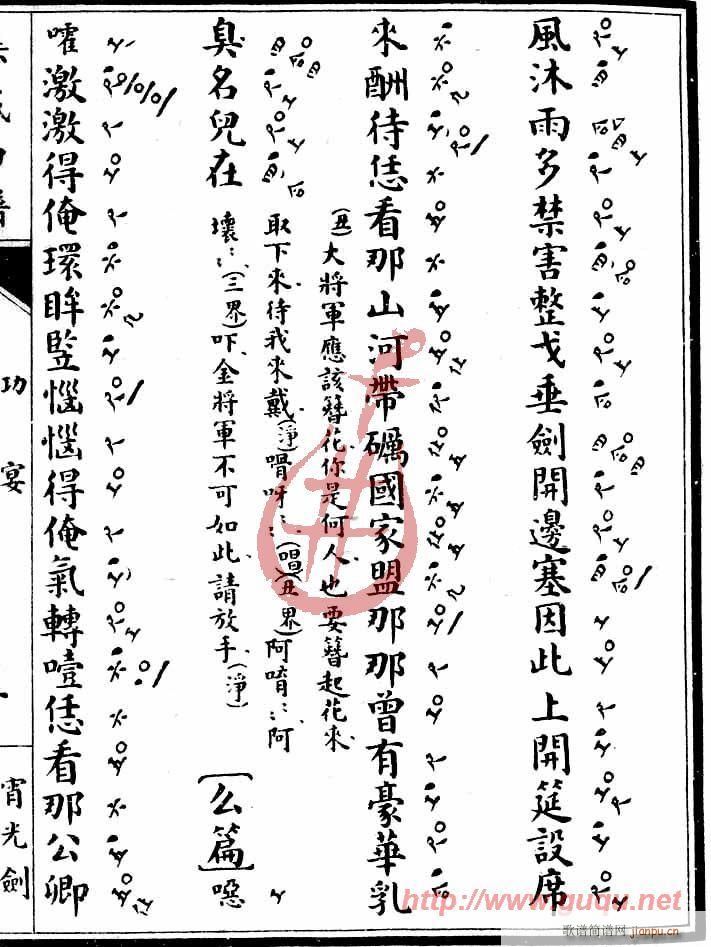 風沐雨多禁害整戈垂劍開邊塞因此上開筵設席
來酬待恁看那山河帶礪國家盟那那曾有豪華乳
臭名兒在
(丑)大將軍應該簪花你是何人也要簪起花來
取下來待我來戴(淨)唶呀〻〻(唱)(丑界)阿唷〻〻阿
壞〻〻(三界)吓金將軍不可如此請放手(淨)
〔么篇〕噁
嚾激激得俺環眸豎惱惱得俺氣轉噎恁看那公卿
功宴
宵光劍
http://www.guqu.net
歌谱简谱网
jianpu.cn